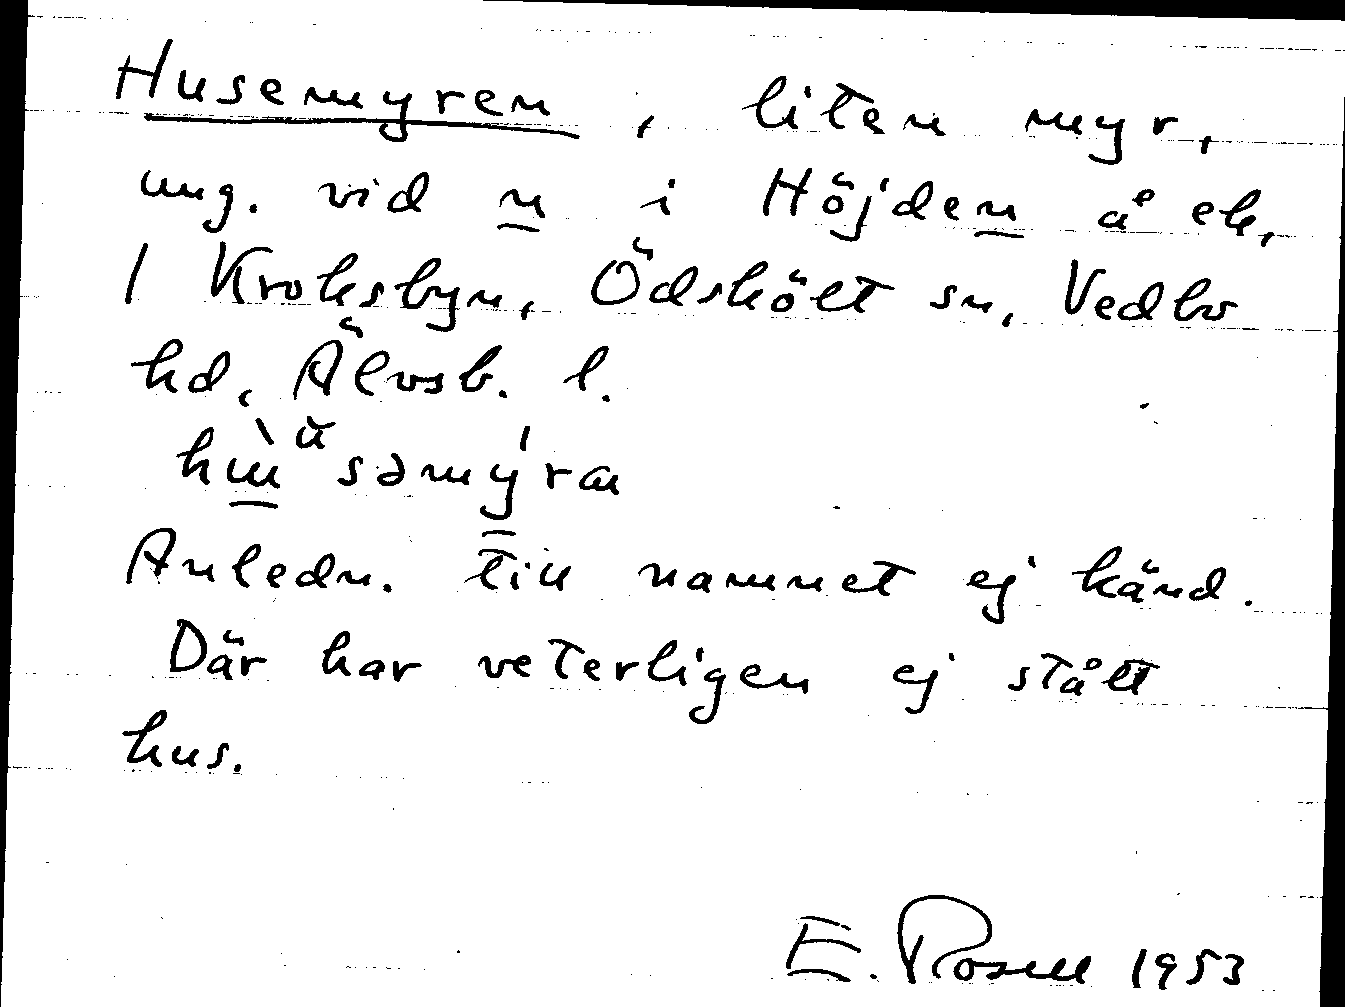 Husemyren, liten myr,
ung. vid n i Höjden å ek,
1 Kroksbyn, Ödskölt sn, Vedbo
hd, Älvsb. l.
Anledn. till namnet ej känd.
Där har veterligen ej stått
hus.
E. Rosell 1953